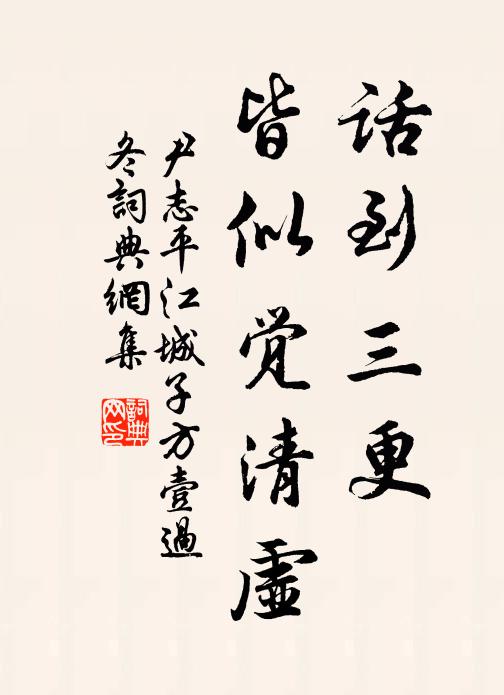 话到三更
皆似觉清虚
尹志平江城子方壹過
冬詞典網集
詞典
网印